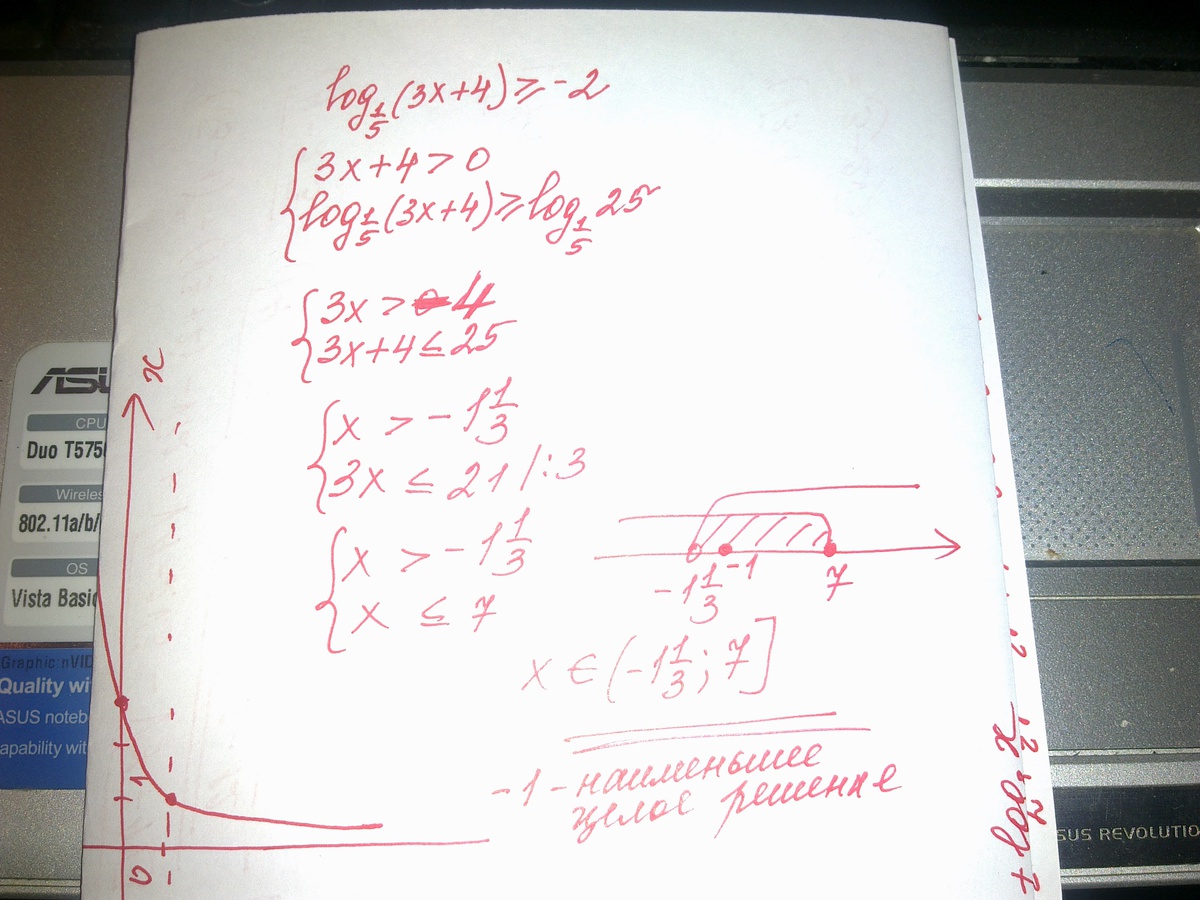 log 1/5 (3x+4) ≥ -2
{ 3x+4 > 0
{ log 1/5 (3x+4) ≥ log 1/5 25
{ 3x > 4
{ 3x+4 ≤ 25
{ x > -1 1/3
{ 3x ≤ 21 /:3
{ x > -1 1/3
{ x ≤ 7
-1 1/3 -1 7
x ∈ (-1 1/3; 7]
-1 - наименьшее
целое решение
x
1
0
ASU
CPU
Duo T575
Wireles
802.11a/b/
OS
Vista Basic
Graphic: nVID
Quality wi
ASUS noteb
apability wit
SUS REVOLUTIO